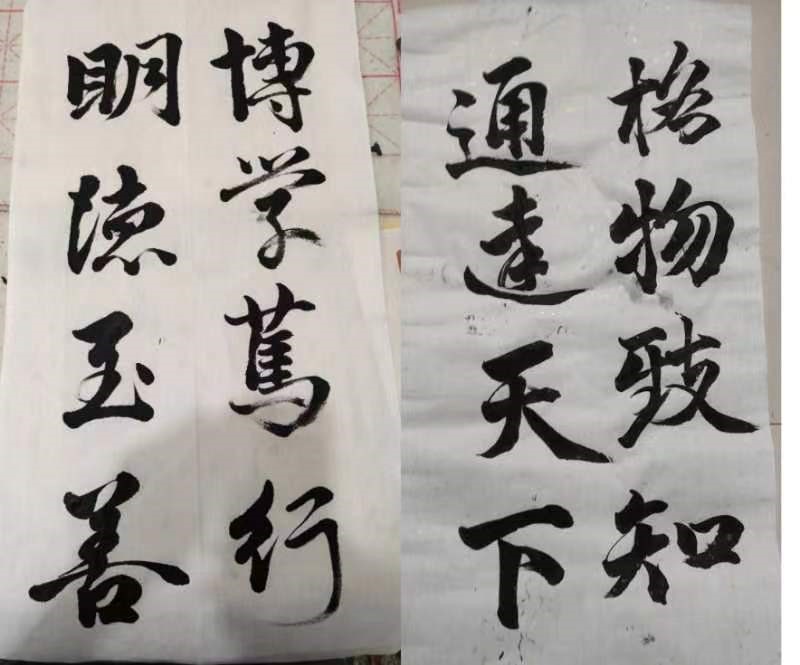 博学篤行
明德至善
格物致知
通達天下